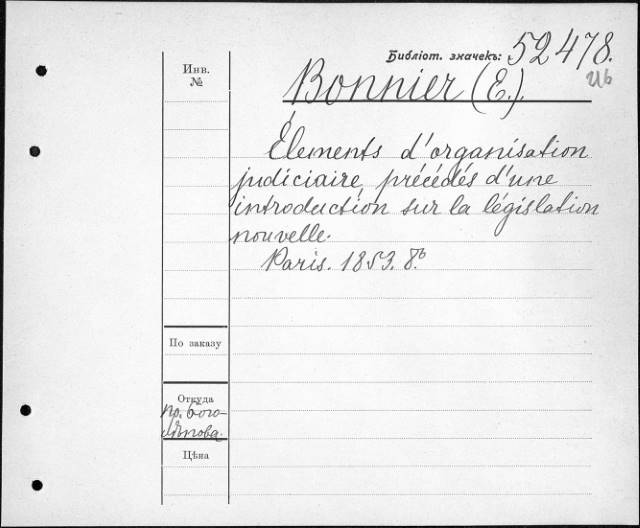 Библіот. значекъ: 52478.
Инв. №
Bonnier (E.).
Élements d'organisation
judiciaire, précédés d'une
introduction sur la législation
nouvelle.
Paris. 1853. 8º
По заказу
Откуда
Цѣна